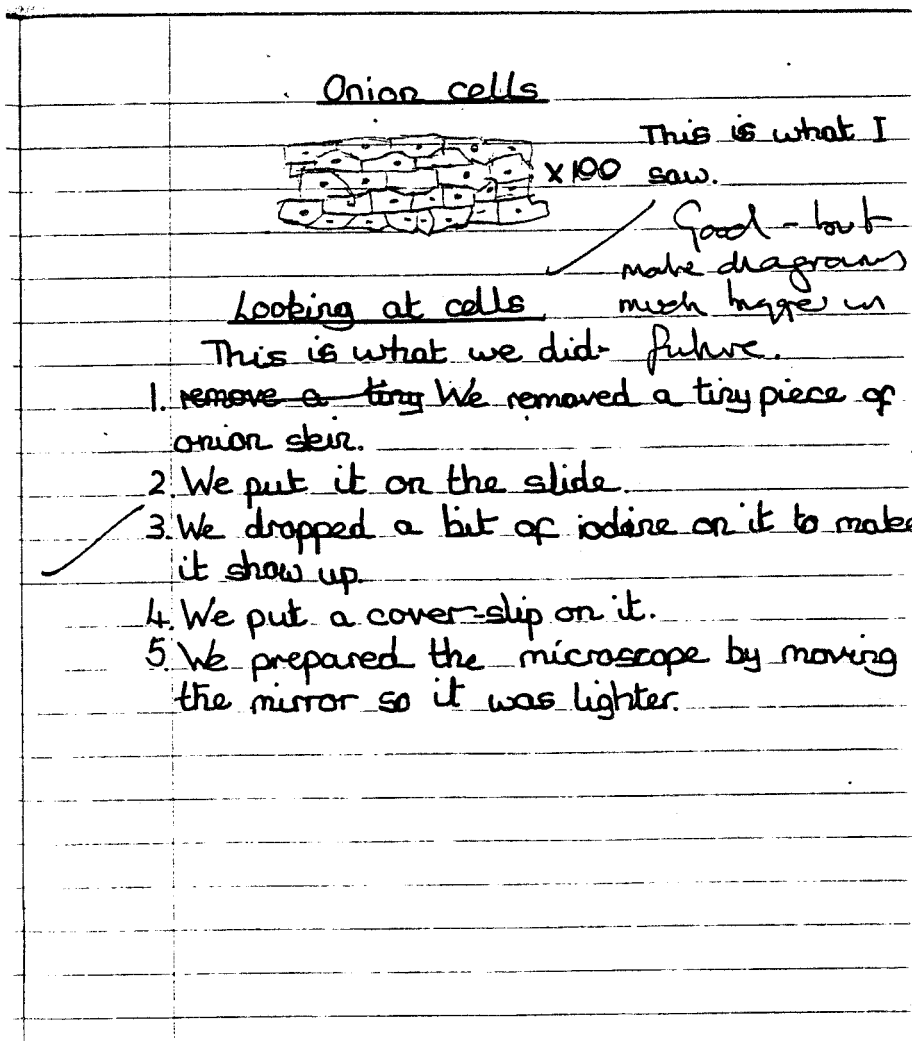 Onion cells
This is what I
x100 saw.
Good - but
make diagrams
much bigger in
future.
Looking at cells
This is what we did-
1. remove a tiny We removed a tiny piece of
onion skin.
2. We put it on the slide.
3. We dropped a bit of iodine on it to make
it show up.
4. We put a cover-slip on it.
5. We prepared the microscope by moving
the mirror so it was lighter.